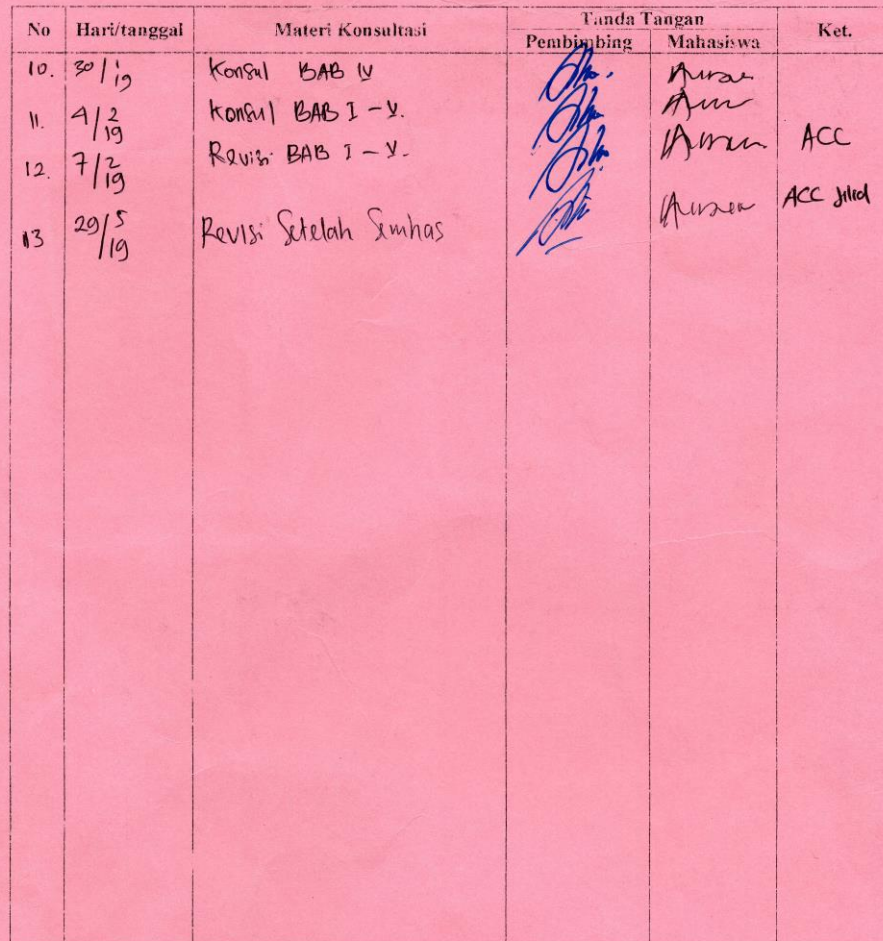 No Hari/tanggal Materi Konsultasi Tanda Tangan Ket.
Pembimbing Mahasiswa
10. 30/1/19 Konsul BAB IV
11. 4/2/19 Konsul BAB I - V.
12. 7/2/19 Revisi BAB I - V. ACC
13 29/5/19 Revisi Setelah Semhas ACC Jilid